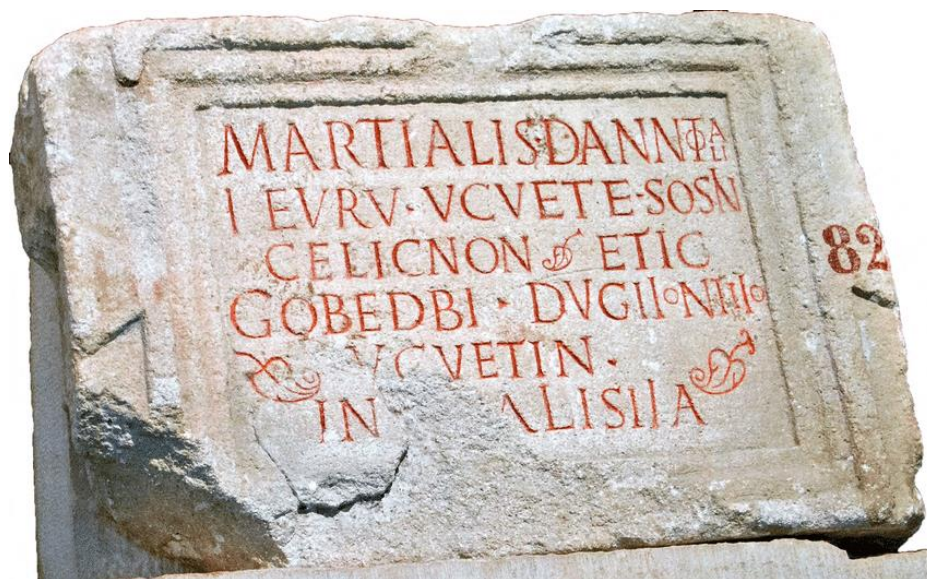 MARTIALIS·DANNOTALI
IEVRV·VCVETE·SOSIN
CELICNON ETIC
GOBEDBI·DVGIIONTIIO
VCVETIN·
IN ALISIIA
82